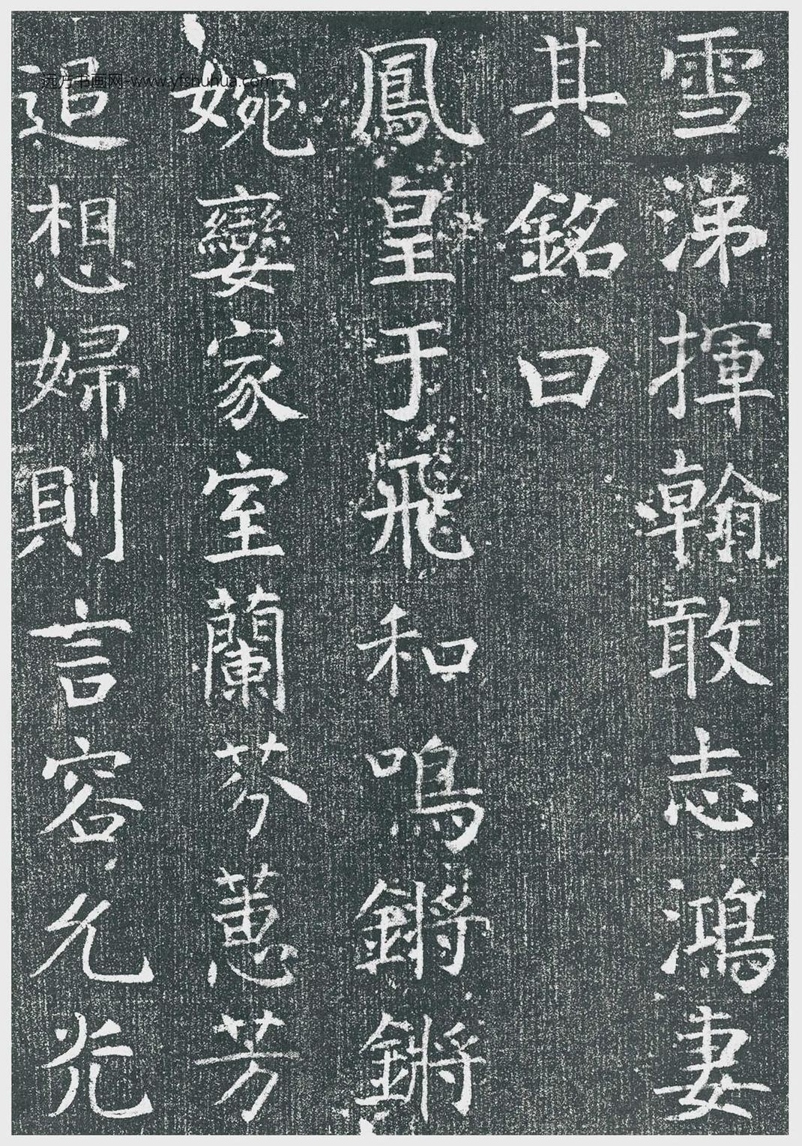 雪涕揮翰敢志鴻妻
其銘曰
鳳皇于飛和鳴鏘鏘
婉孌家室蘭芬蕙芳
追想婦則言容允光
远方书画网-www.yfshuhua.com